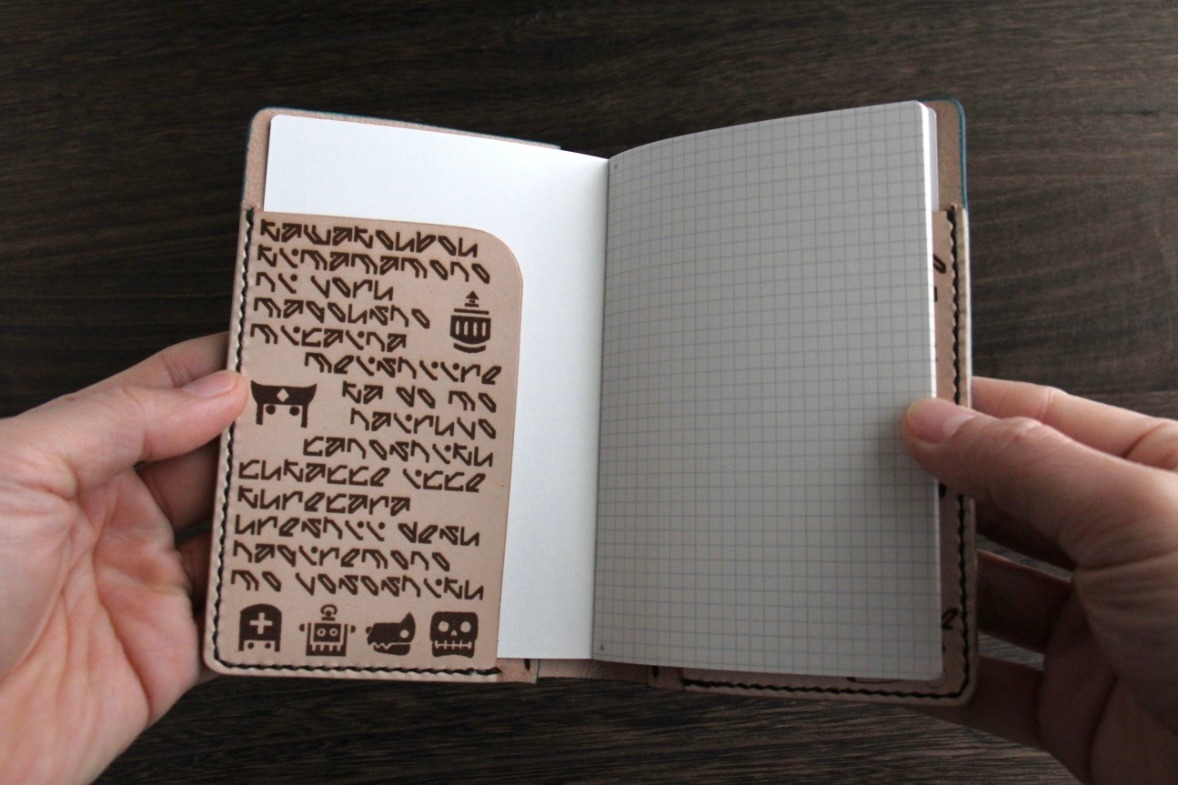 kawakoubou
kimamamono
ni yoru
madousho
mitaina
meishiire
ka do mo
hairuyo
tanoshiku
tukatte itte
kuretara
ureshii desu
hagiremono
mo yoroshiku